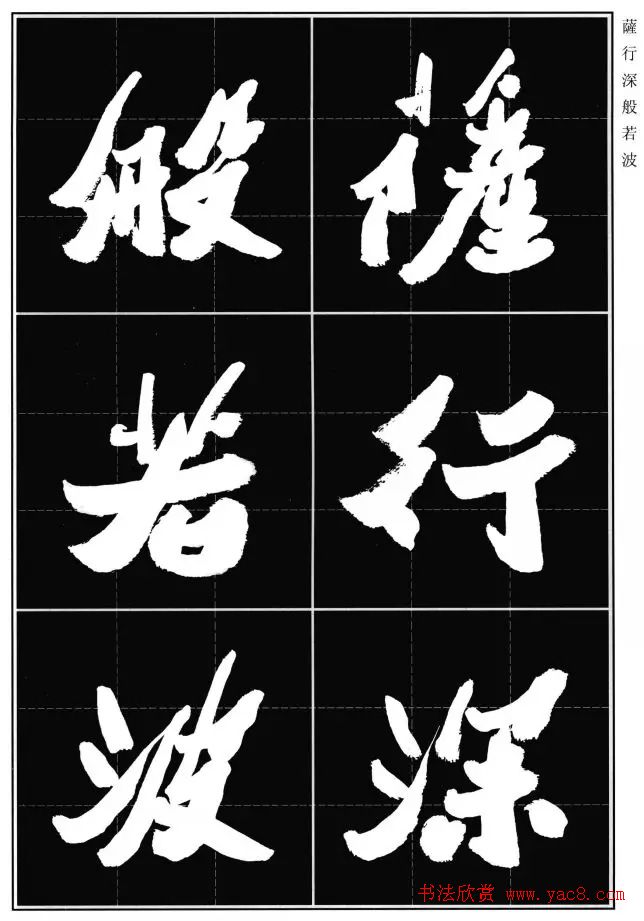 薩行深般若波
薩行深
般若波
书法欣赏 www.yac8.com